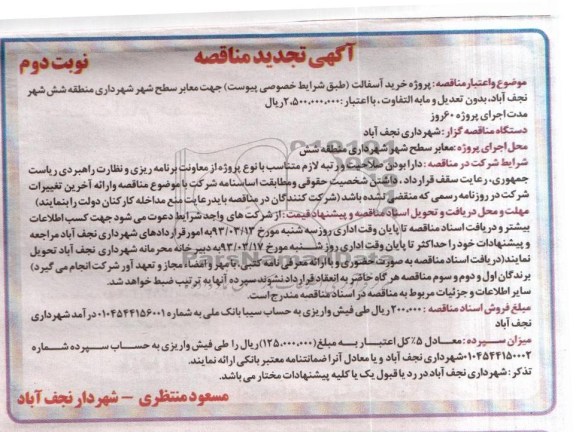 آگهی تجدید مناقصه
نوبت دوم
موضوع و اعتبار مناقصه: پروژه خرید آسفالت (طبق شرایط خصوصی پیوست) جهت معابر سطح شهر شهرداری منطقه شش شهر
نجف آباد، بدون تعدیل و مابه التفاوت، با اعتبار: ۲،۵۰۰،۰۰۰،۰۰۰ ریال
مدت اجرای پروژه ۶۰ روز
دستگاه مناقصه گزار: شهرداری نجف آباد
محل اجرای پروژه: معابر سطح شهر شهرداری منطقه شش
شرایط شرکت در مناقصه: دارا بودن صلاحیت و رتبه لازم متناسب با نوع پروژه از معاونت برنامه ریزی و نظارت راهبردی ریاست
جمهوری، رعایت سقف قرارداد، داشتن شخصیت حقوقی و مطابقت اساسنامه شرکت با موضوع مناقصه و ارائه آخرین تغییرات
شرکت در روزنامه رسمی که منقضی نشده باشد (شرکت کنندگان در مناقصه باید رعایت منع مداخله کارکنان دولت را بنمایند)
مهلت و محل دریافت و تحویل اسناد مناقصه و پیشنهاد قیمت: از شرکت های واجد شرایط دعوت می شود جهت کسب اطلاعات
بیشتر و دریافت اسناد مناقصه تا پایان وقت اداری روز سه شنبه مورخ ۹۳/۰۳/۱۳ به امور قراردادهای شهرداری نجف آباد مراجعه
و پیشنهادات خود را حداکثر تا پایان وقت اداری روز شنبه مورخ ۹۳/۰۳/۱۷ به دبیرخانه محرمانه شهرداری نجف آباد تحویل
نمایند (دریافت اسناد مناقصه به صورت حضوری و با ارائه معرفی نامه کتبی، با مهر و امضاء مجاز و تعهد آور شرکت انجام می گیرد)
برندگان اول و دوم و سوم مناقصه هرگاه حاضر به انعقاد قرارداد نشوند سپرده آنها به ترتیب ضبط خواهد شد.
سایر اطلاعات و جزئیات مربوط به مناقصه در اسناد مناقصه مندرج است.
مبلغ فروش اسناد مناقصه: ۲۰۰،۰۰۰ ریال طی فیش واریزی به حساب سیبا بانک ملی به شماره ۰۱۰۴۵۴۴۱۵۶۰۰۱ درآمد شهرداری
نجف آباد
میزان سپرده: معادل ۵٪ کل اعتبار به مبلغ (۱۲۵،۰۰۰،۰۰۰) ریال را طی فیش واریزی به حساب سپرده شماره
۰۱۰۴۵۴۴۱۵۰۰۰۲ شهرداری نجف آباد و یا معادل آن را ضمانتنامه معتبر بانکی ارائه نمایند.
تذکر: شهرداری نجف آباد در رد یا قبول یک یا کلیه پیشنهادات مختار می باشد.
مسعود منتظری – شهردار نجف آباد